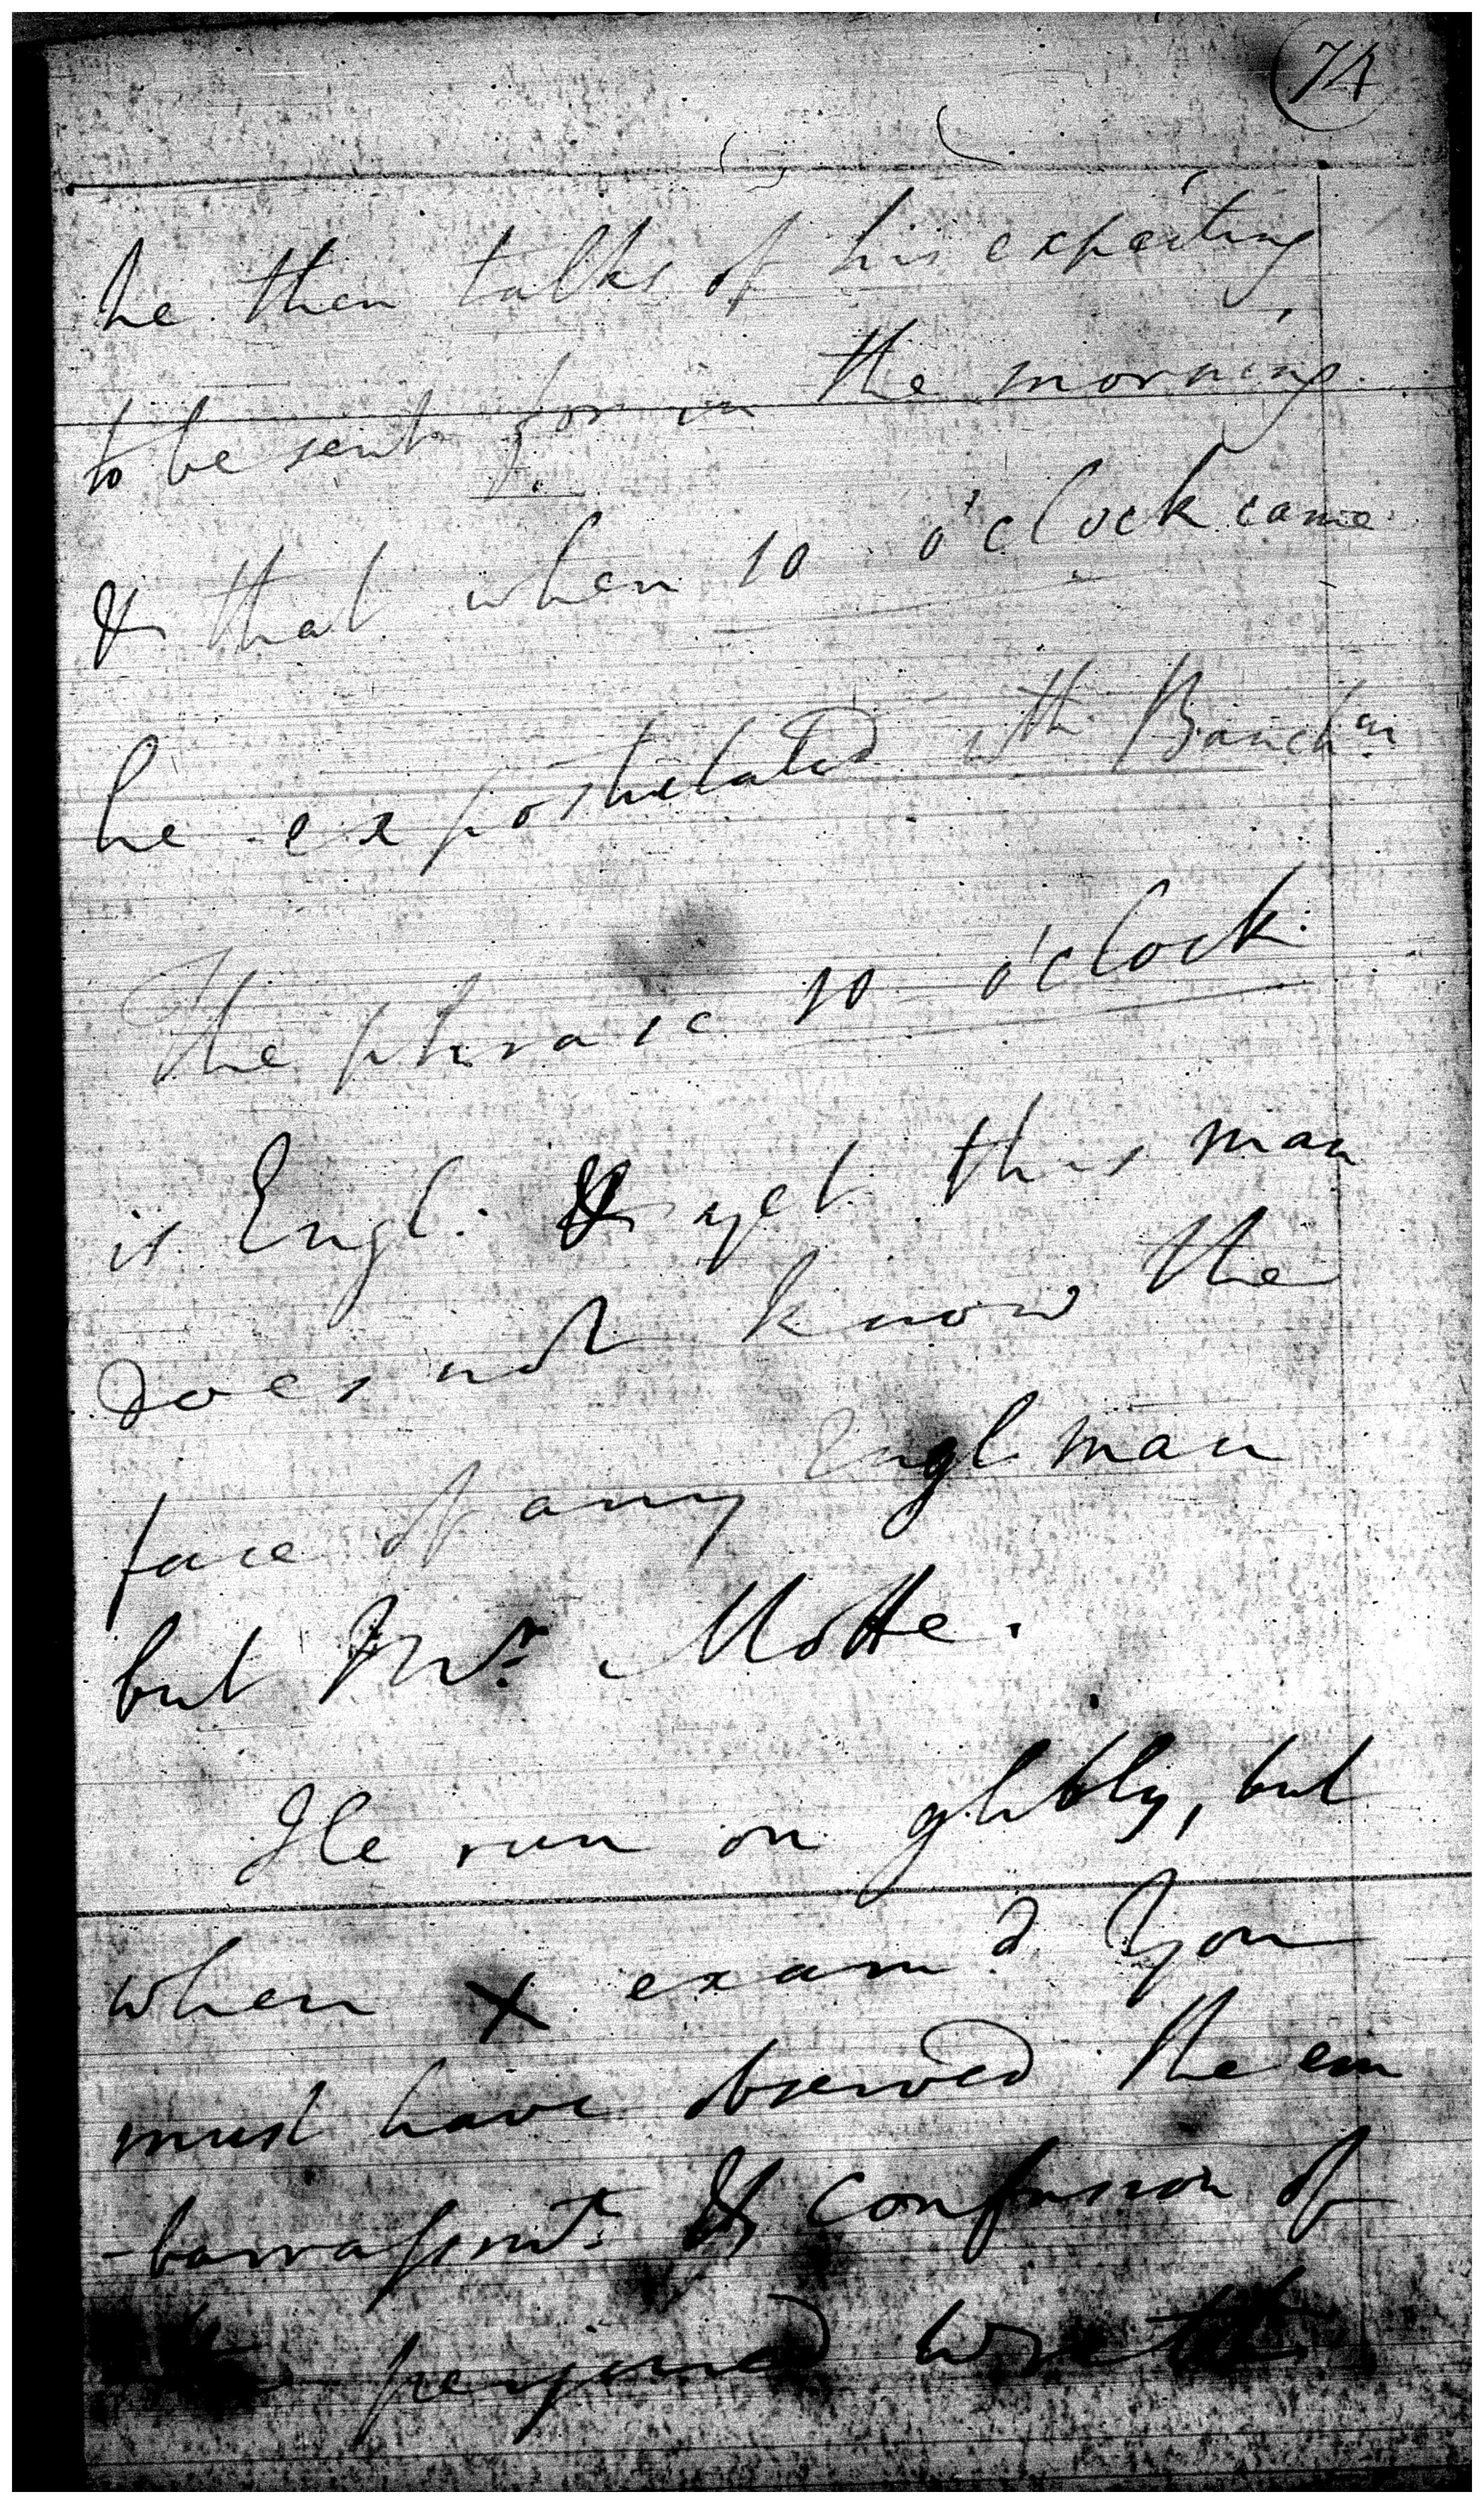 74
he then talks of his expecting
to be sent for in the morning
& that when 10 o'clock came
he expostulated wth Banchm
The phrase 10 o'clock
is Engl. & yet this man
does not know the
face of any Engl man
but Mr. Motte.
He run on glibly, but
when X examd. You
must have observed the em
-barrassmt. & confusion of
the perjured wretch